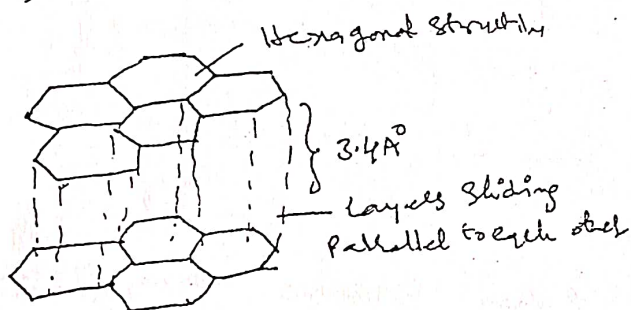 Hexagonal Structure
3.4A°
Layers Sliding
Parallel to each other